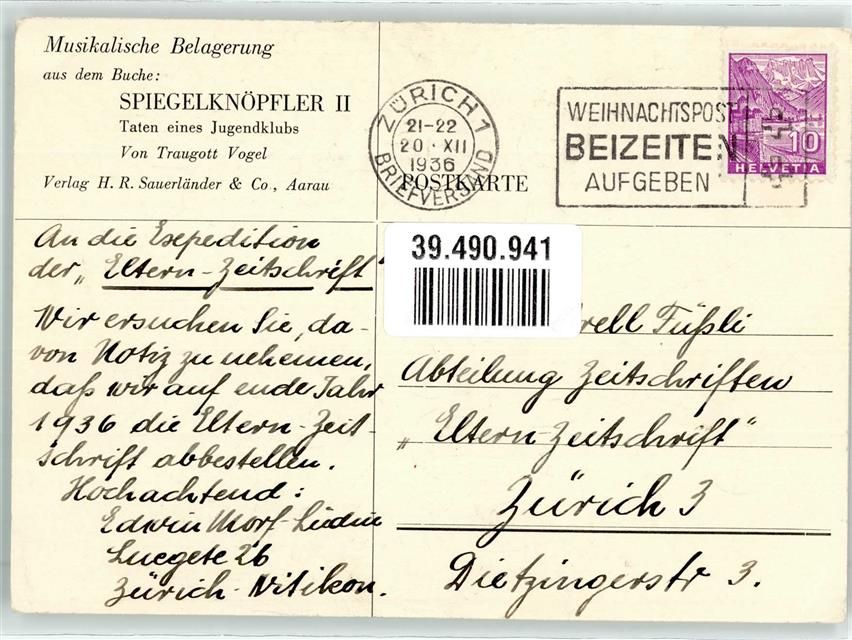 Musikalische Belagerung
aus dem Buche:
SPIEGELKNÖPFLER II
Taten eines Jugendklubs
Von Traugott Vogel
Verlag H. R. Sauerländer & Co., Aarau
ZÜRICH 1
21-22
20·XII
1936
BRIEFVERSAND
POSTKARTE
WEIHNACHTSPOST
BEIZEITEN
AUFGEBEN
10
HELVETIA
An die Exepedition
der „Eltern-Zeitschrift"
Wir ersuchen Sie, da-
von Notiz zu nehemen,
daß wir auf ende Jahr
1936 die Eltern-Zeit-
schrift abbestellen.
Hochachtend:
Edwin Morf-
26
Zürich-Witikon.
39.490.941
rell Füßli
Abteilung Zeitschriften
„Eltern-Zeitschrift"
Zürich 3
Dietzingerstr 3.